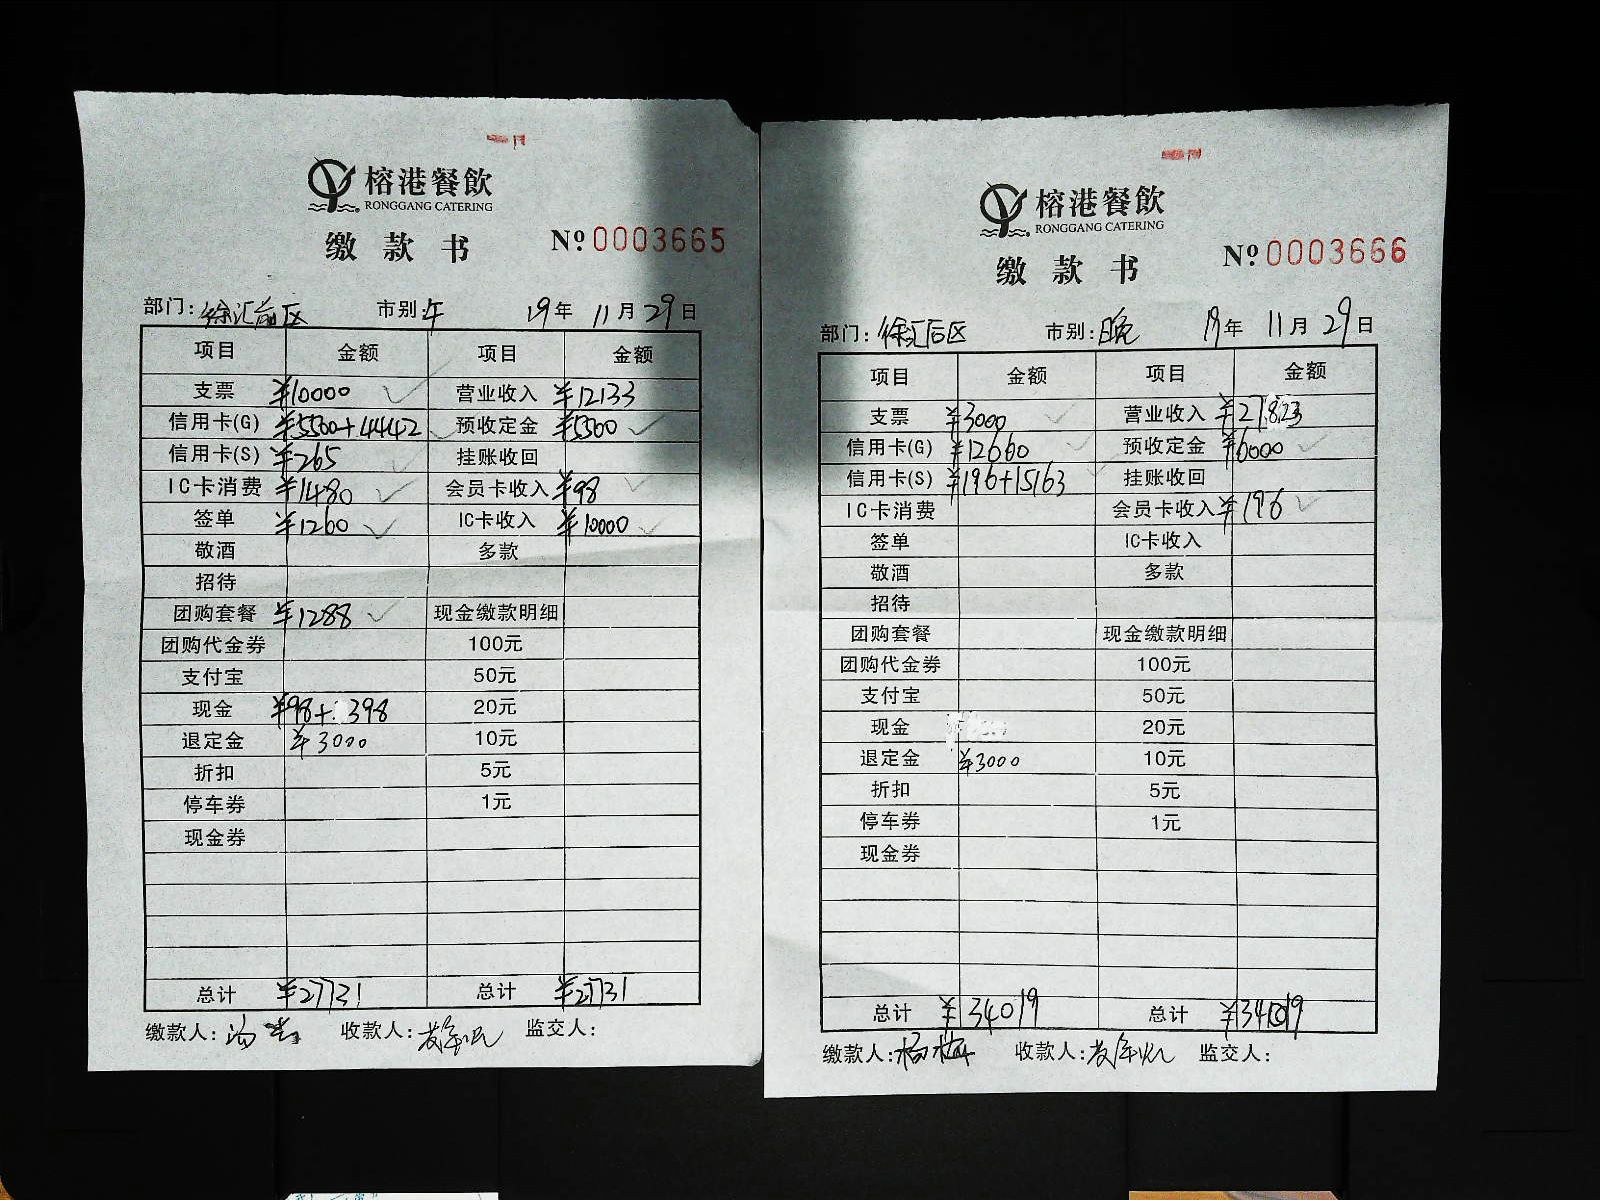 榕港餐飲
RONGGANG CATERING
缴款书 №0003665
部门: 徐汇前区 市别: 午 19年 11月29日
项目 金额 项目 金额
支票 ¥10000 营业收入 ¥12133
信用卡(G) ¥5500+4442 预收定金 ¥5500
信用卡(S) ¥265 挂账收回
IC卡消费 ¥1480 会员卡收入 ¥98
签单 ¥1260 IC卡收入 ¥10000
敬酒 多款
招待
团购套餐 ¥1288 现金缴款明细
团购代金券 100元
支付宝 50元
现金 ¥98+398 20元
退定金 ¥3000 10元
折扣 5元
停车券 1元
现金券
总计 ¥27731 总计 ¥27731
缴款人: 收款人: 监交人:
榕港餐飲
RONGGANG CATERING
缴款书 №0003666
部门: 徐汇后区 市别: 晚 19年 11月29日
项目 金额 项目 金额
支票 ¥3000 营业收入 ¥27823
信用卡(G) ¥12660 预收定金 ¥6000
信用卡(S) ¥196+15163 挂账收回
IC卡消费 会员卡收入 ¥196
签单 IC卡收入
敬酒 多款
招待
团购套餐 现金缴款明细
团购代金券 100元
支付宝 50元
现金 20元
退定金 ¥3000 10元
折扣 5元
停车券 1元
现金券
总计 ¥34019 总计 ¥34019
缴款人: 杨梅 收款人: 监交人: